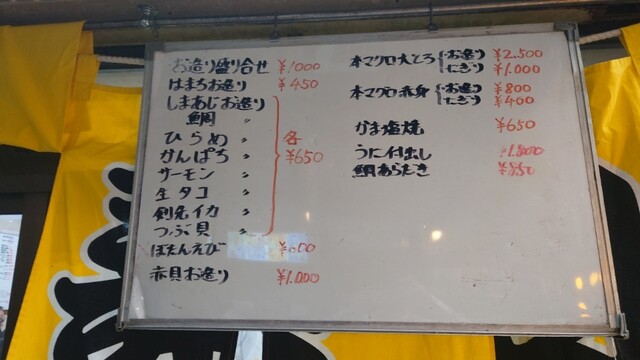 お造り盛り合せ ¥1000
はまち お造り ¥450
しまあじお造り
鯛 〃
ひらめ 〃
かんぱち 〃
サーモン 〃
生タコ 〃
剣先イカ 〃
つぶ貝 〃
各 ¥650
ぼたんえび
赤貝お造り ¥1.000
本マグロ大とろ お造り ¥2.500
にぎり ¥1.000
本マグロ赤身 お造り ¥800
にぎり ¥400
かま塩焼 ¥650
うに付出し
鯛あらだき